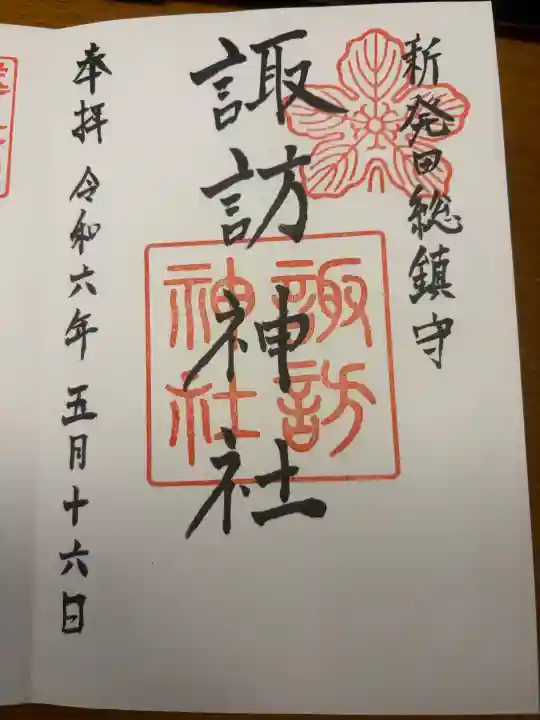 新発田総鎮守
諏訪神社
諏訪
神社
奉拝 令和六年 五月十六日